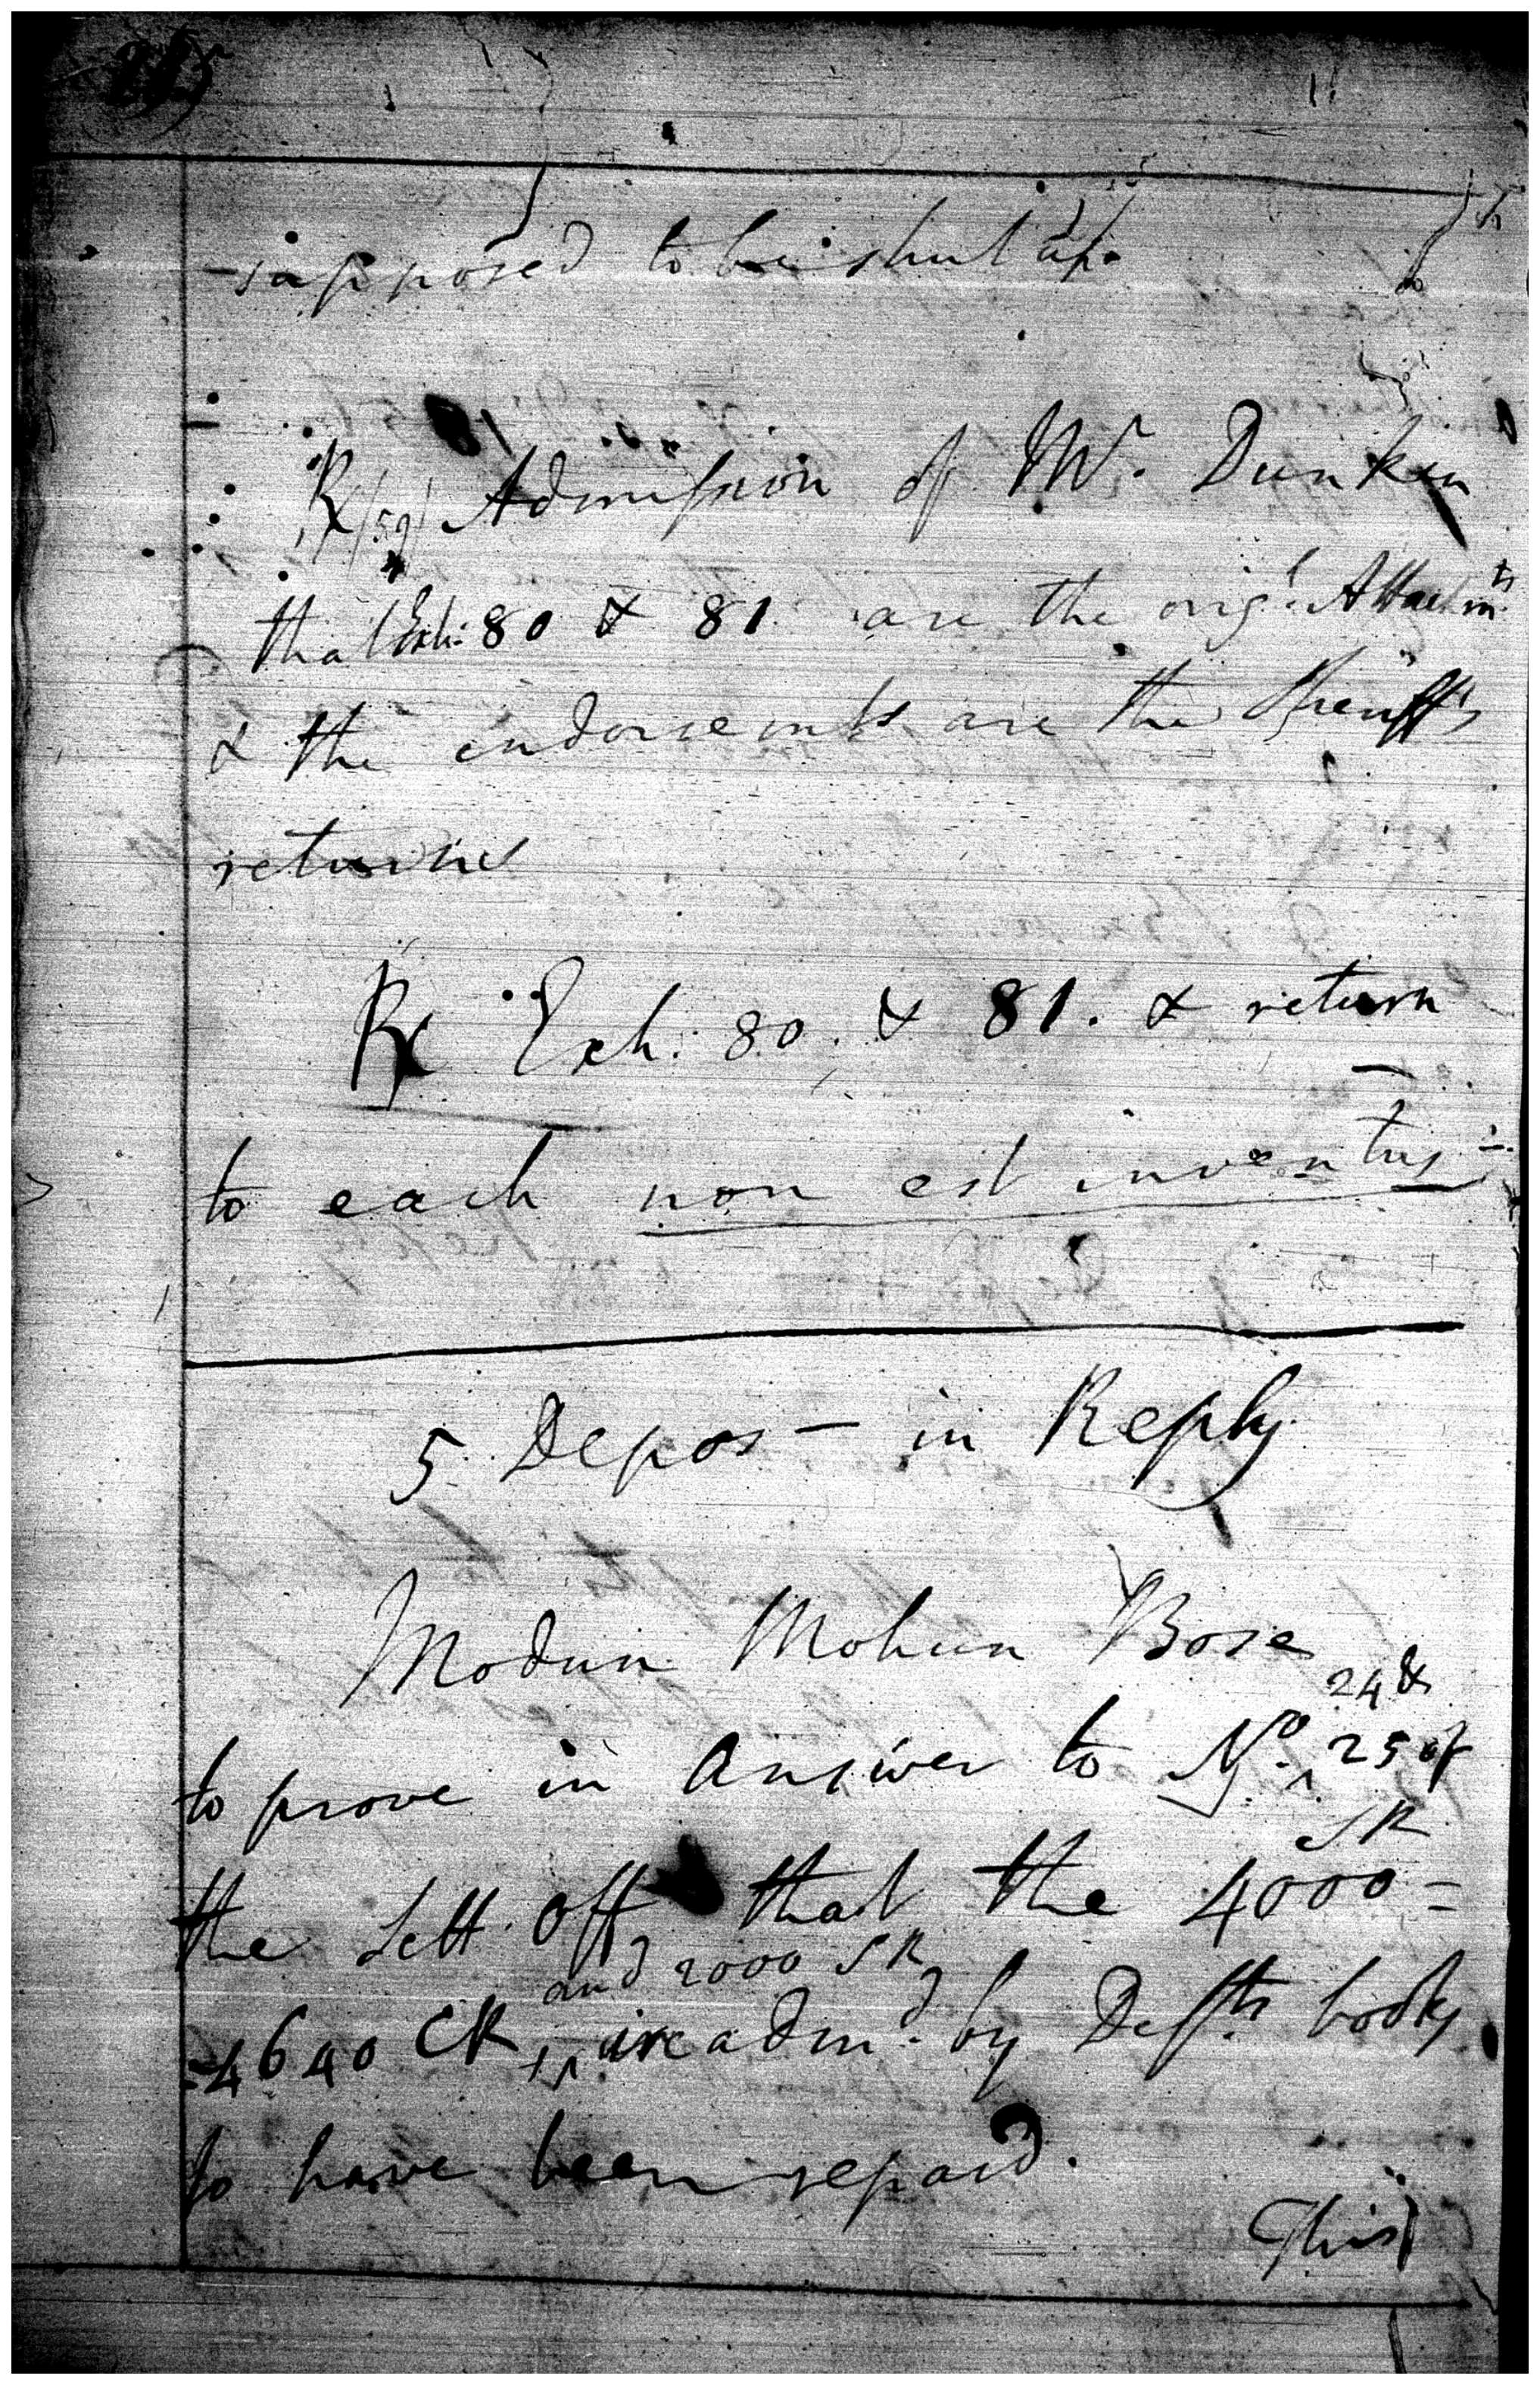 supposed to be shut up.
Rx /59/ Admission of Mr. Dunkin
that Exh: 80 & 81 are the origl. Attachmts
& the endorsements are the Sheriff's
returns
Rx Exh: 80. & 81. & return
to each non est inventus
5 Depos - in Reply
Modun Mohun Bose
24 &
to prove in Answer to No. 25 of
SR
the Sett. Off that the 4000 =
and 2000 SR
= 4640 CR are admd. by Defts books
to have been repaid.
This